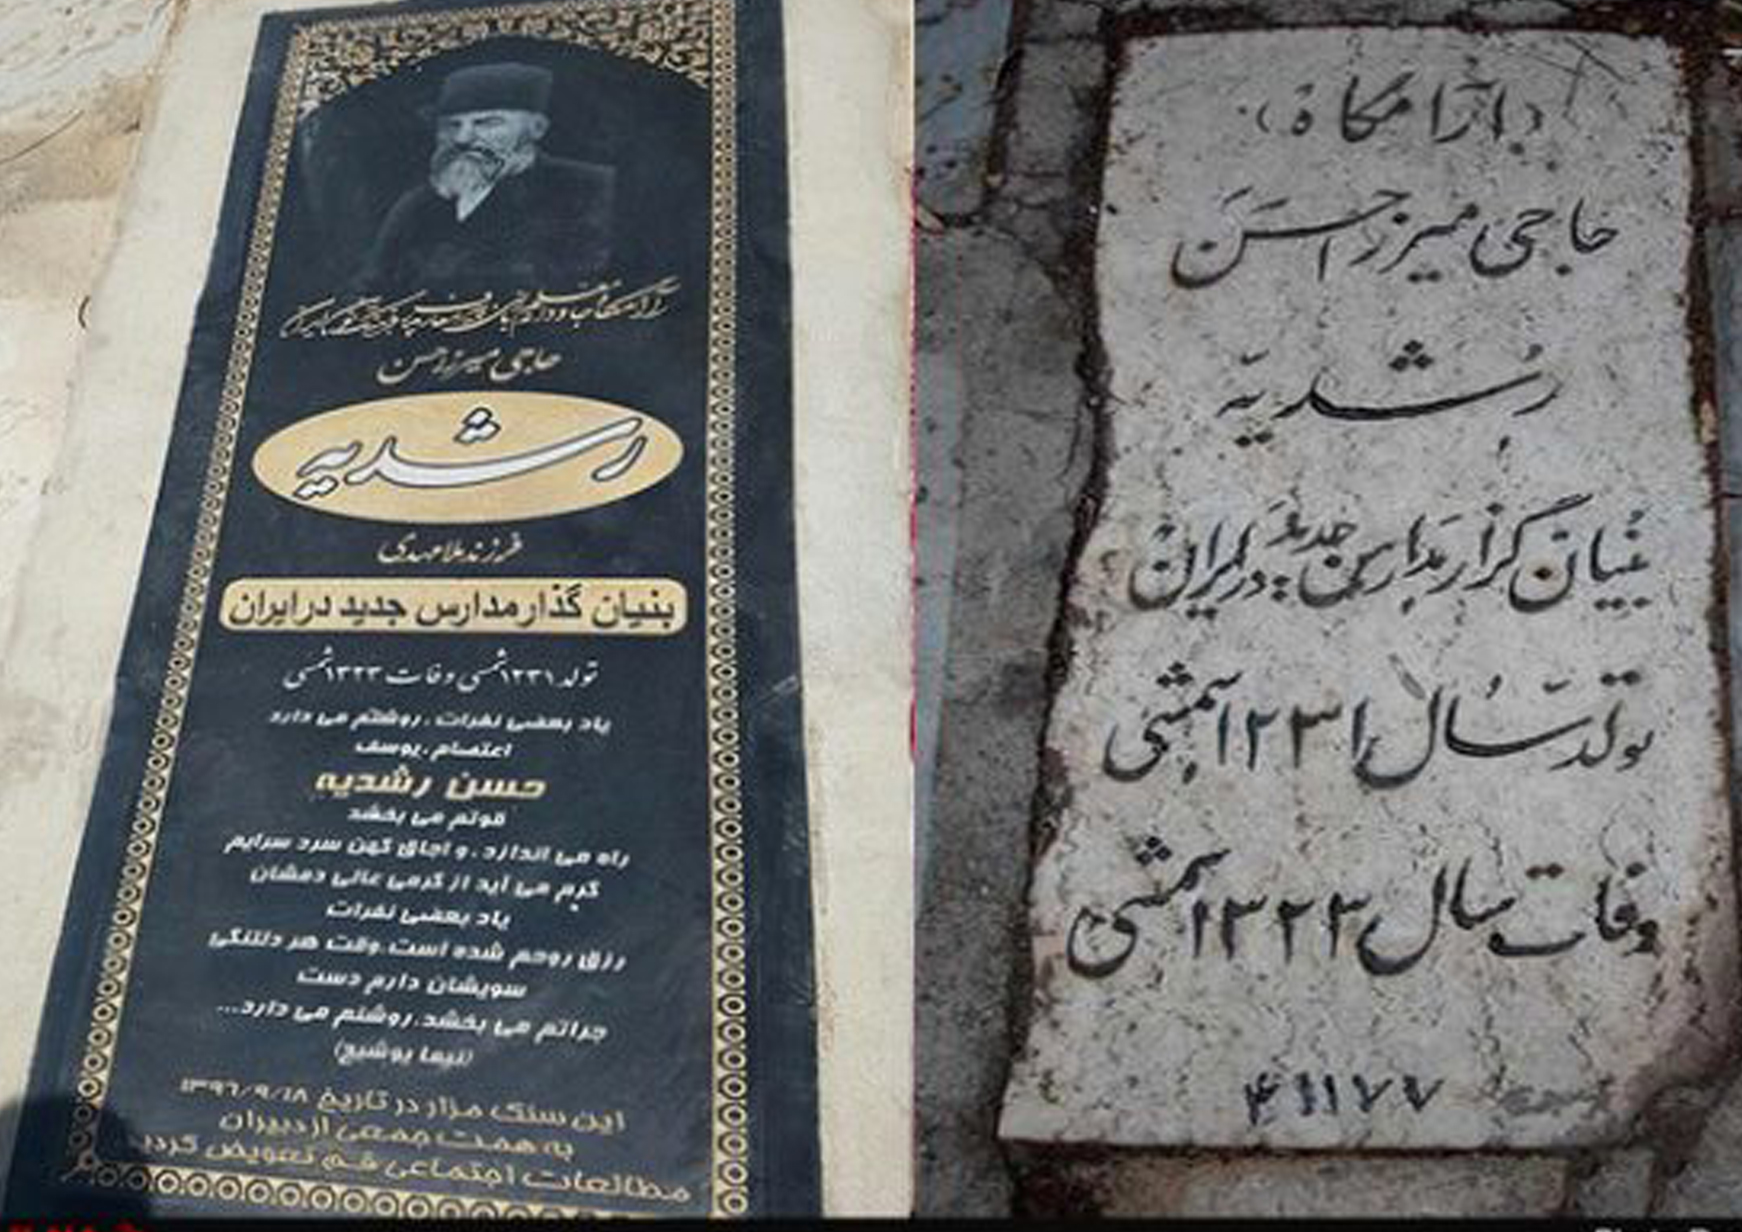 آرامگاه
حاجی میرزا حسن
رشدیه
فرزند ملا مهدی
بنیان گذار مدارس جدید در ایران
تولد ۱۲۳۱ شمسی وفات ۱۳۲۳ شمسی
یاد بعضی نفرات، روشنم می دارد
اعتصام یوسف
حسن رشدیه
قوتم می بخشد
راه می اندازد، و اجاق کهن سرد سرایم
گرم می آید از گرمی عالی دمشان
یاد بعضی نفرات
رزق روحم شده است، وقت هر دلتنگی
سویشان دارم دست
جراتم می بخشد، روشنم می دارد...
(نیما یوشیج)
این سنگ مزار در تاریخ ۱۳۹۶/۹/۱۸
به همت جمعی از دبیران
مطالعات اجتماعی قم تعویض گردید
(آرامگاه)
حاجی میرزا حسن
رشدیه
بنیان گزار مدارس جدید در ایران
تولد سال ۱۲۳۱ شمسی
وفات سال ۱۳۲۳ شمسی
۴۱۱۷۷